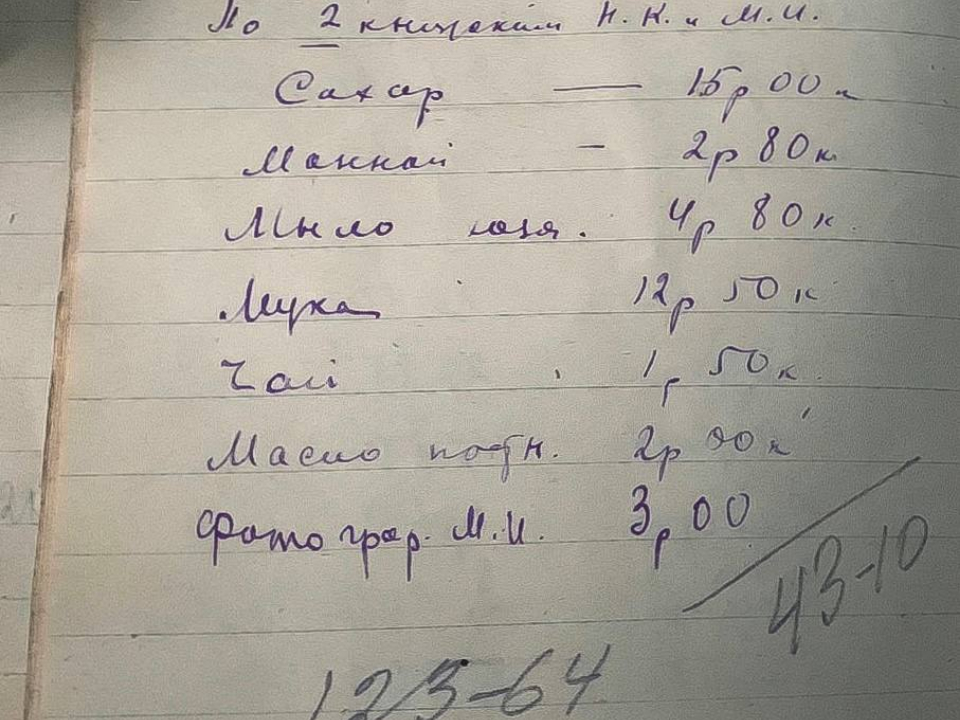 По 2 Н.К. и М.И.
Сахар — 15р 00к
Манной - 2р 80к
Мыло хозя. 4р 80к.
Мука 12р 50к
Чай 1р 50к.
Масло постн. 2р
Фотограф. М.И. 3р 00
43-10
123-64